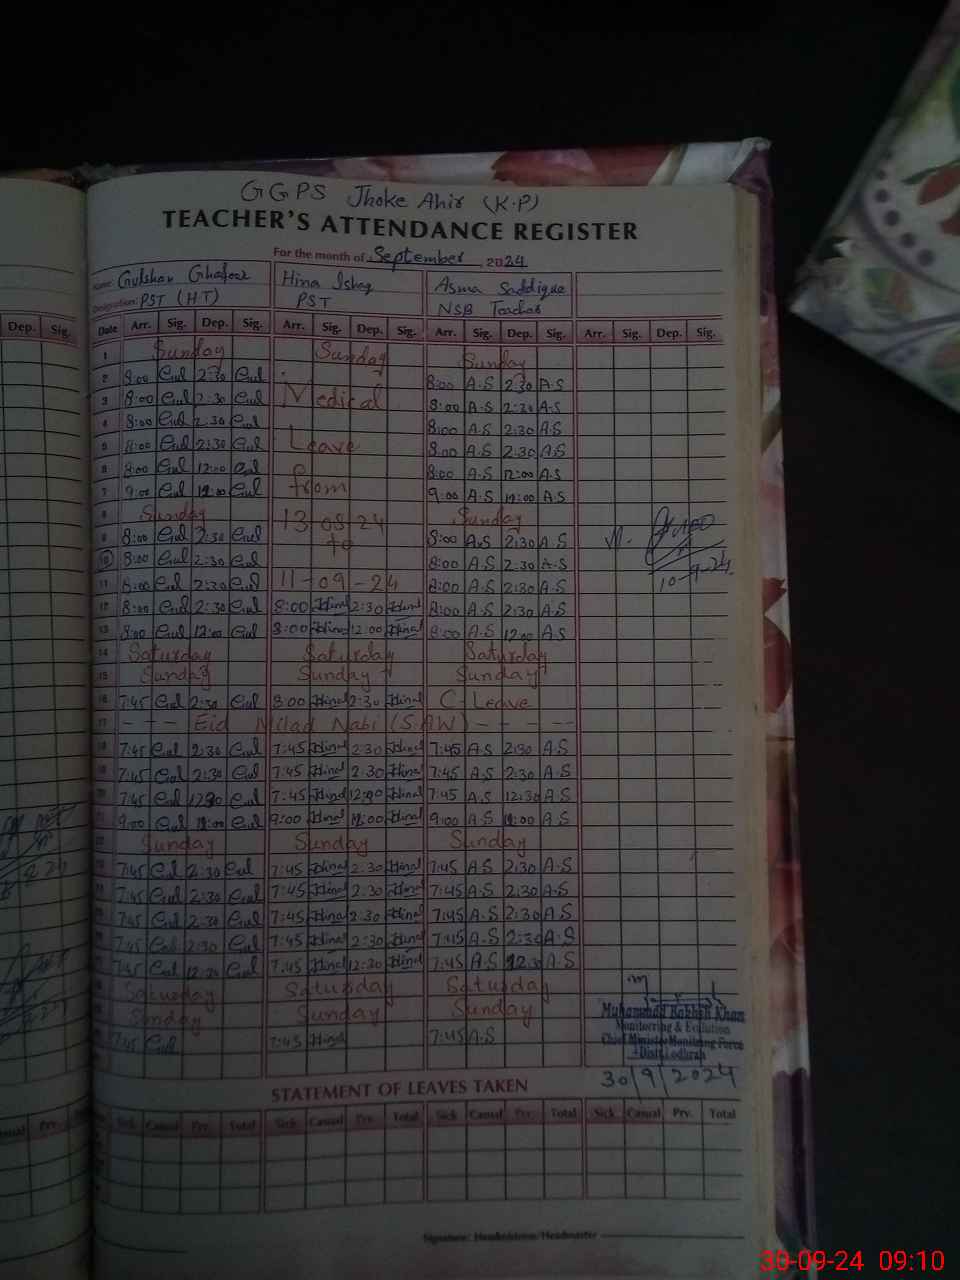 GGPS Jhoke Ahir (K.P)
TEACHER'S ATTENDANCE REGISTER
For the month of September 2024
Name: Gulshan Ghafoor Hina Ishaq Asma Saddique
Designation: PST (HT) PST NSB Teacher
Dep. Sig. Date Arr. Sig. Dep. Sig. Arr. Sig. Dep. Sig. Arr. Sig. Dep. Sig. Arr. Sig. Dep. Sig.
1 Sunday Sunday Sunday
2 8:00 Gul 2:30 Gul 8:00 A.S 2:30 A.S
3 8:00 Gul 2:30 Gul Medical 8:00 A.S 2:30 A.S
4 8:00 Gul 2:30 Gul 8:00 A.S 2:30 A.S
5 8:00 Gul 2:30 Gul Leave 8:00 A.S 2:30 A.S
6 8:00 Gul 12:00 Gul 8:00 A.S 12:00 A.S
7 9:00 Gul 11:00 Gul from 9:00 A.S 11:00 A.S
8 Sunday 13-08-24 Sunday
9 8:00 Gul 2:30 Gul to 8:00 A.S 2:30 A.S
10 8:00 Gul 2:30 Gul 8:00 A.S 2:30 A.S
10-9-24
11 8:00 Gul 2:30 Gul 11-09-24 8:00 A.S 2:30 A.S
12 8:00 Gul 2:30 Gul 8:00 Hina 2:30 Hina 8:00 A.S 2:30 A.S
13 8:00 Gul 12:00 Gul 8:00 Hina 12:00 Hina 8:00 A.S 12:00 A.S
14 Saturday Saturday Saturday
15 Sunday Sunday Sunday
16 7:45 Gul 2:30 Gul 8:00 Hina 2:30 Hina C-Leave
17 - - - Eid Milad Nabi (S.A.W) - - - -
18 7:45 Gul 2:30 Gul 7:45 Hina 2:30 Hina 7:45 A.S 2:30 A.S
19 7:45 Gul 2:30 Gul 7:45 Hina 2:30 Hina 7:45 A.S 2:30 A.S
20 7:45 Gul 12:30 Gul 7:45 Hina 12:30 Hina 7:45 A.S 12:30 A.S
21 9:00 Gul 11:00 Gul 9:00 Hina 11:00 Hina 9:00 A.S 11:00 A.S
22 Sunday Sunday Sunday
23 7:45 Gul 2:30 Gul 7:45 Hina 2:30 Hina 7:45 A.S 2:30 A.S
24 7:45 Gul 2:30 Gul 7:45 Hina 2:30 Hina 7:45 A.S 2:30 A.S
25 7:45 Gul 2:30 Gul 7:45 Hina 2:30 Hina 7:45 A.S 2:30 A.S
26 7:45 Gul 2:30 Gul 7:45 Hina 2:30 Hina 7:45 A.S 2:30 A.S
27 7:45 Gul 12:30 Gul 7:45 Hina 12:30 Hina 7:45 A.S 12:30 A.S
28 Saturday Saturday Saturday
29 Sunday Sunday Sunday
30 7:45 Gul 7:45 Hina 7:45 A.S
Muhammad Khan
Monitoring & Evalution
Chief Minister Monitring Force
Distt Lodhran
30/9/2024
STATEMENT OF LEAVES TAKEN
Sick Casual Prv. Total Sick Casual Prv. Total Sick Casual Prv. Total Sick Casual Prv. Total
Signature: Headmistress/Headmaster
30-09-24 09:10